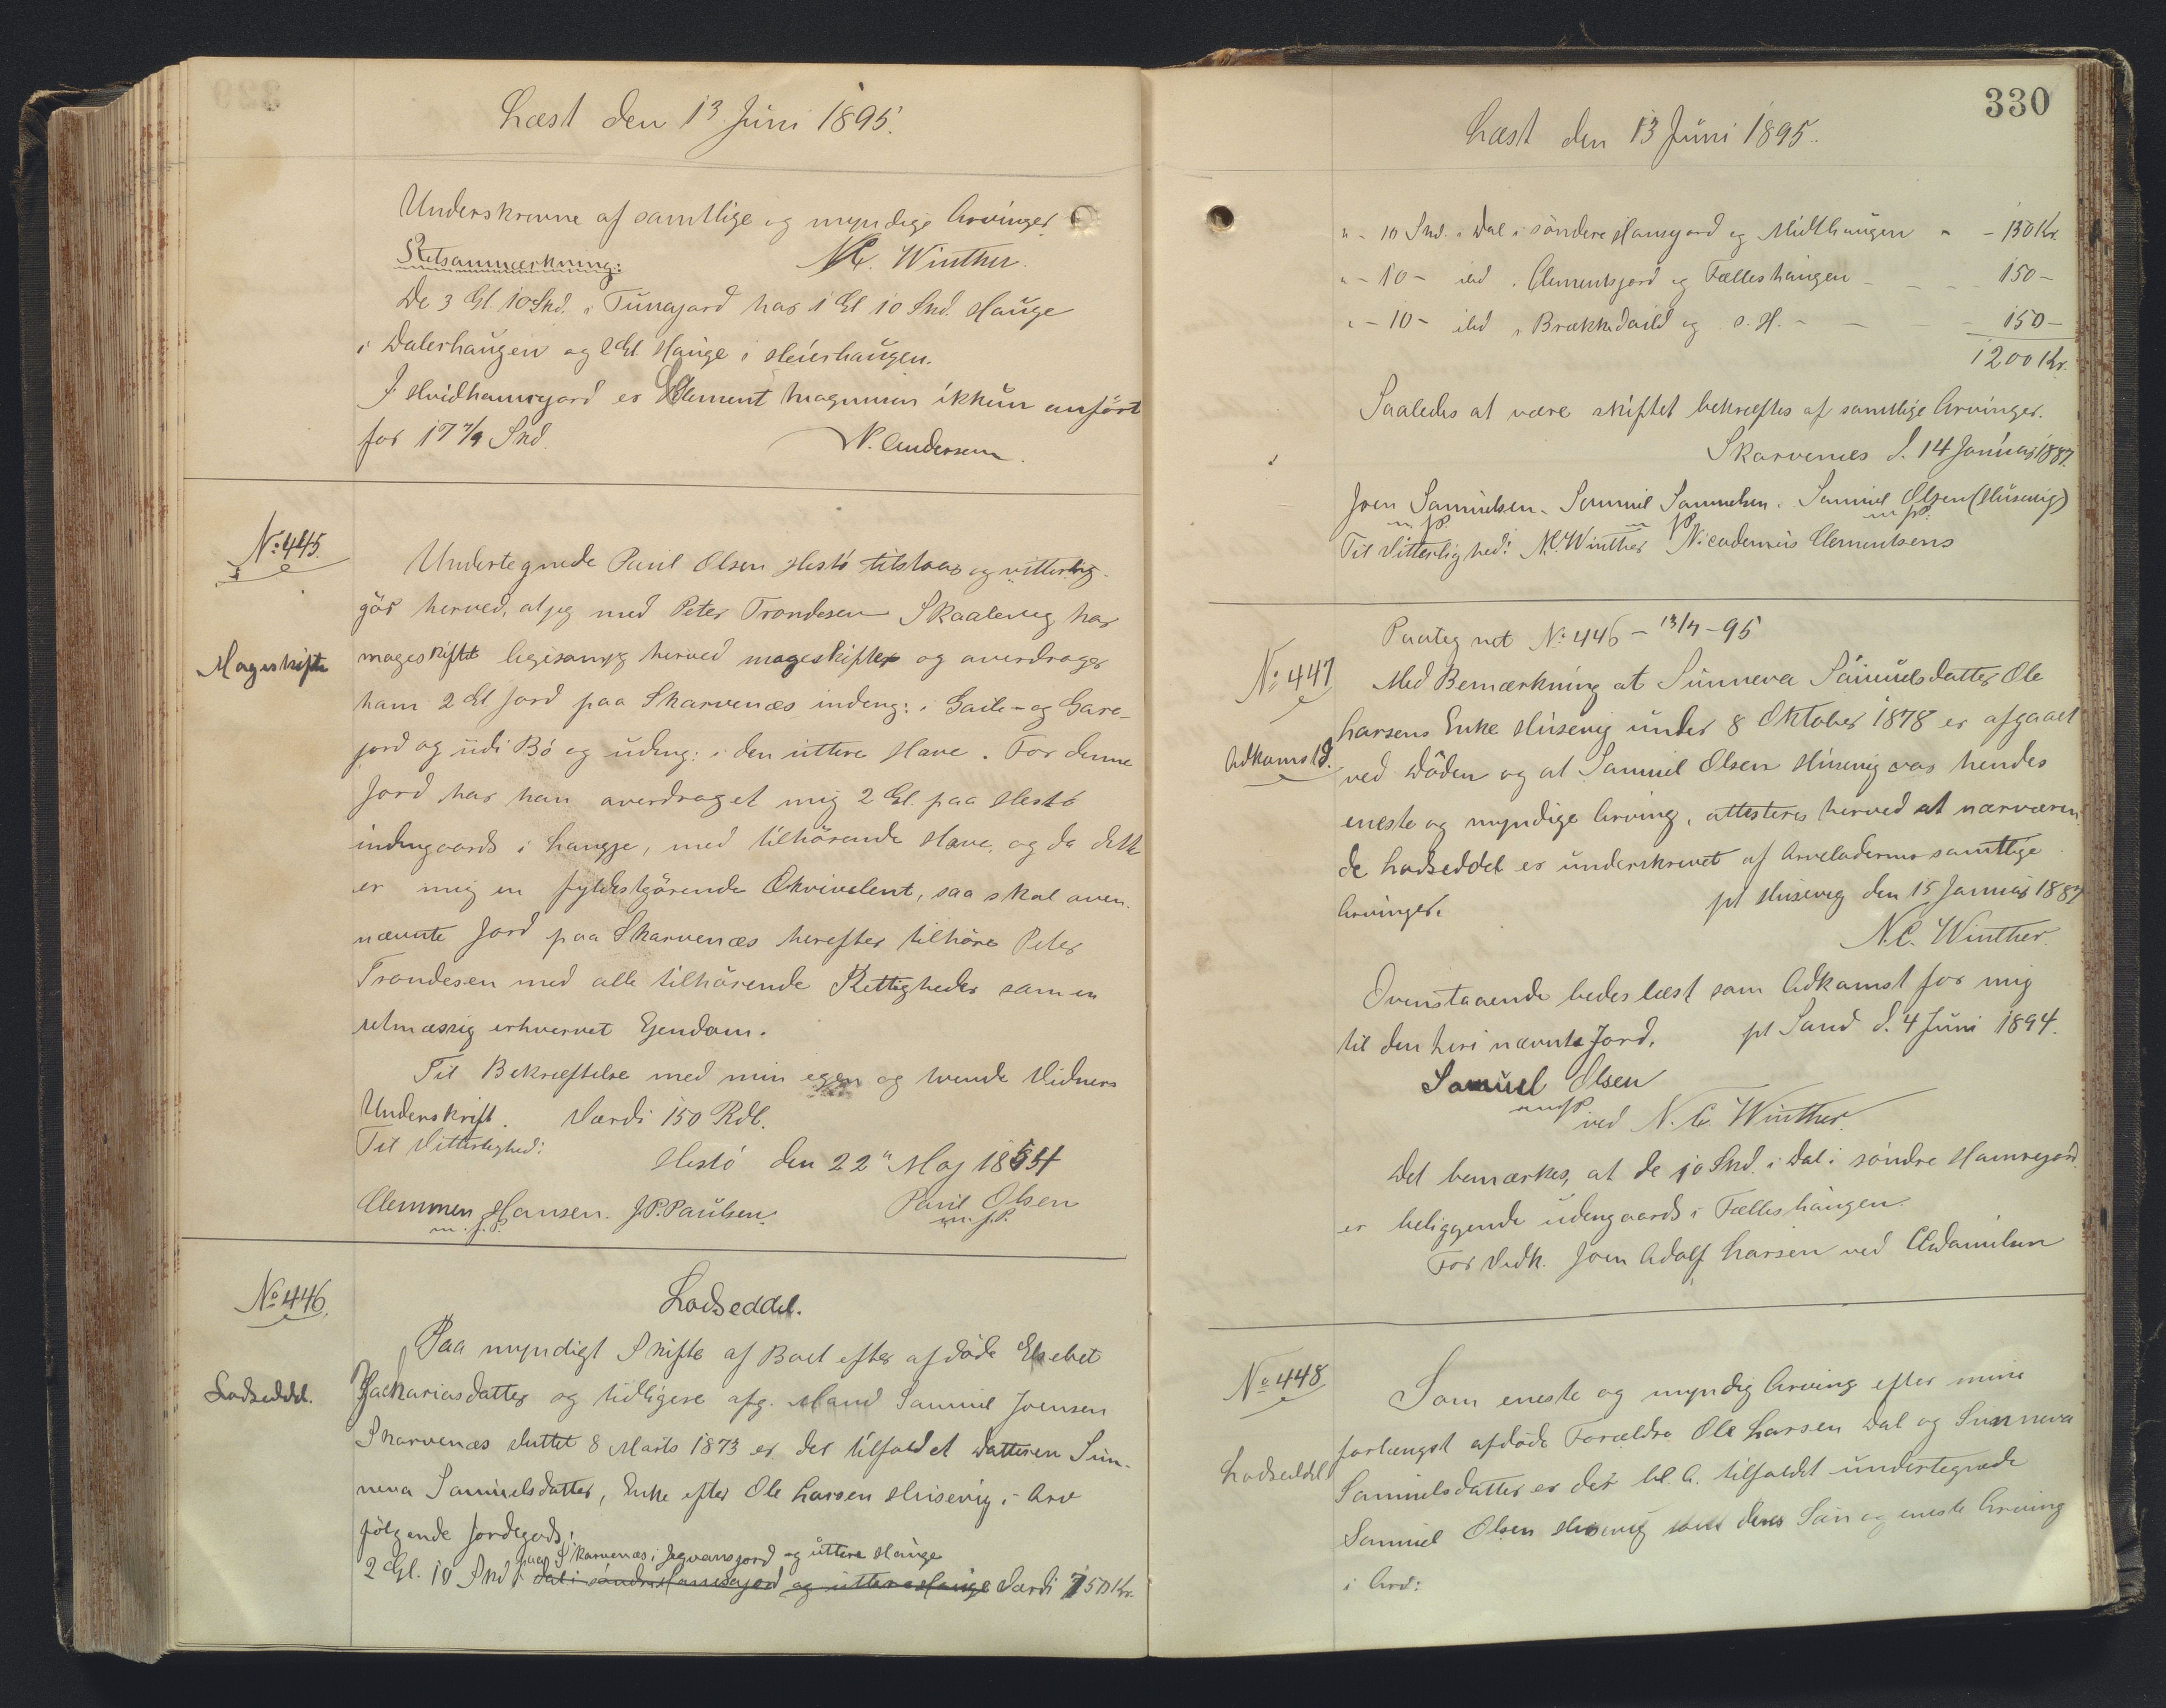 Læst den 13 Juni 1895.
Underskrevne af samtlige og myndige Arvinger.
Retsanmærkning: N.C. Winther.
De 3 Gl 10 Skd. i Tunajord har 1 Gl 10 Skd. Hauge
i Dalerhaugen og 2 Gl. Hauge i Heierhaugen.
I Hvidhamrejord er Clement Magnussen ikkun anført
for 17 7/9 Skd. N. Andersen.
No: 445.
Mageskifte
Undertegnede Paul Olsen Hestö tilstaar og vitterlig-
gör herved, at jeg med Peter Trondesen Skaalevig har
mageskiftet ligesom jeg herved mageskifter og overdrager
ham 2 Gl Jord paa Skarvenæs indeng: i Gaile- og Gare-
jord og udi Bö og udeng: i den uttere Have. For denne
Jord har han overdraget mig 2 Gl. paa Hestö
indengaards i Laugje, med tilhörende Have, og da dette
er mig en fyldestgörende Ækvivalent, saa skal oven-
nævnte Jord paa Skarvenæs herefter tilhöre Peter
Trondesen med alle tilhörende Rettigheder som en
retmæssig erhvervet Ejendom.
Til Bekræftelse med min egen og tvende Vidners
Underskrift. Værdi 150 Rdl.
Til Vitterlighed:
Hestö den 22" Maj 1854
Clemmen Hansen. J.P. Paulsen. Paul Olsen
m.f.P. m.f.P.
No 446.
Lodseddel.
Lodseddel.
Paa myndigt Skifte af Boet efter afdöde Elsebet
Zachariasdatter og tidligere afg. Mand Samuel Joensen
Skarvenæs sluttet 8 Marts 1873 er der tilfaldet Datteren Sun-
neva Samuelsdatter, Enke efter Ole Larsen Husevig i Arv
fölgende Jordegods:
paa Skarvenæs i Jegvansjord og uttere Hauge
2 Gl. 10 Skd i Dal i söndre Hamrejord og uttere Hauge Værdi 750 Kr.
330
Læst den 13 Juni 1895.
" - 10 Skd. i Dal i söndere Hamrejord og Midthaugen " - 150 Kr.
" - 10 - ibd i Clementsjord og Fælleshaugen - - - 150 -
" - 10 - ibd i Brækkedeild og s. H. - - - 150 -
1200 Kr.
Saaledes at være skiftet bekræftes af samtlige Arvinger.
Skarvenes d. 14 Januar 1887.
Joen Samuelsen. Samuel Samuelsen. Samuel Olsen (Husevig)
m f P. m f P. m f P.
Til Vitterlighed: N.C. Winther Nicodemus Clementsens
Paateg. vet No: 446 - 13/7 - 95
No: 447
Adkomstd.
Med Bemærkning at Sunneva Samuelsdatter Ole
Larsens Enke Husevig under 8 Oktober 1878 er afgaaet
ved Döden og at Samuel Olsen Husevig var hendes
eneste og myndige Arving, attesteres herved at nærværen
de Lodseddel er underskrevet af Arveladerens samtlige
Arvinger. pt Husevig den 15 Januar 1887
N.C. Winther.
Ovenstaaende bedes læst som Adkomst for mig
til den heri nævnte Jord. pt Sand d. 4 Juni 1894.
Samuel Olsen
m f P ved N. C. Winther.
Det bemærkes, at de 10 Skd. i Dal i söndre Hamrejord
er beliggende udengaards i Fælleshaugen.
For Vedk. Joen Adolf Larsen ved Danielsen
No 448
Lodseddel
Som eneste og myndig Arving efter mine
forlængst afdöde Forældre Ole Larsen Dal og Sunneva
Samuelsdatter er der bl. A. tilfaldet undertegnede
Samuel Olsen Husevig som deres Sön og eneste Arving
i Arv: